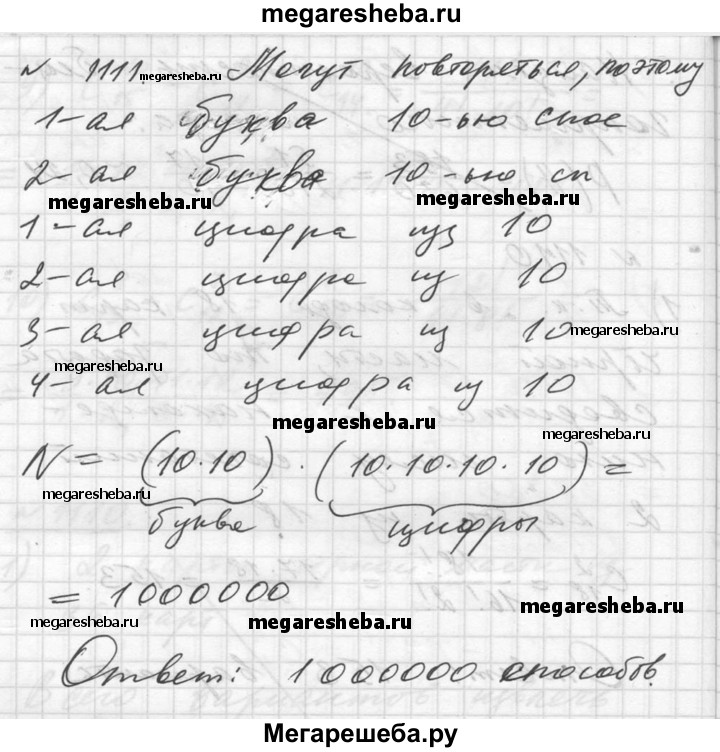 megaresheba.ru
№ 1111. megaresheba.ru Могут повторяться, поэтому
1-ая буква 10-ью спос
2-ая буква 10-ью сп
megaresheba.ru megaresheba.ru
1-ая цифра из 10
2-ая цифра из 10
3-ая цифра из 10 megaresheba.ru
megaresheba.ru
4-ая цифра из 10
megaresheba.ru
megaresheba.ru
N = (10·10) · (10·10·10·10) =
megaresheba.ru
буква цифры
= 1000000
megaresheba.ru megaresheba.ru megaresheba.ru
Ответ: 1000000 способов.
Мегарешеба.ру